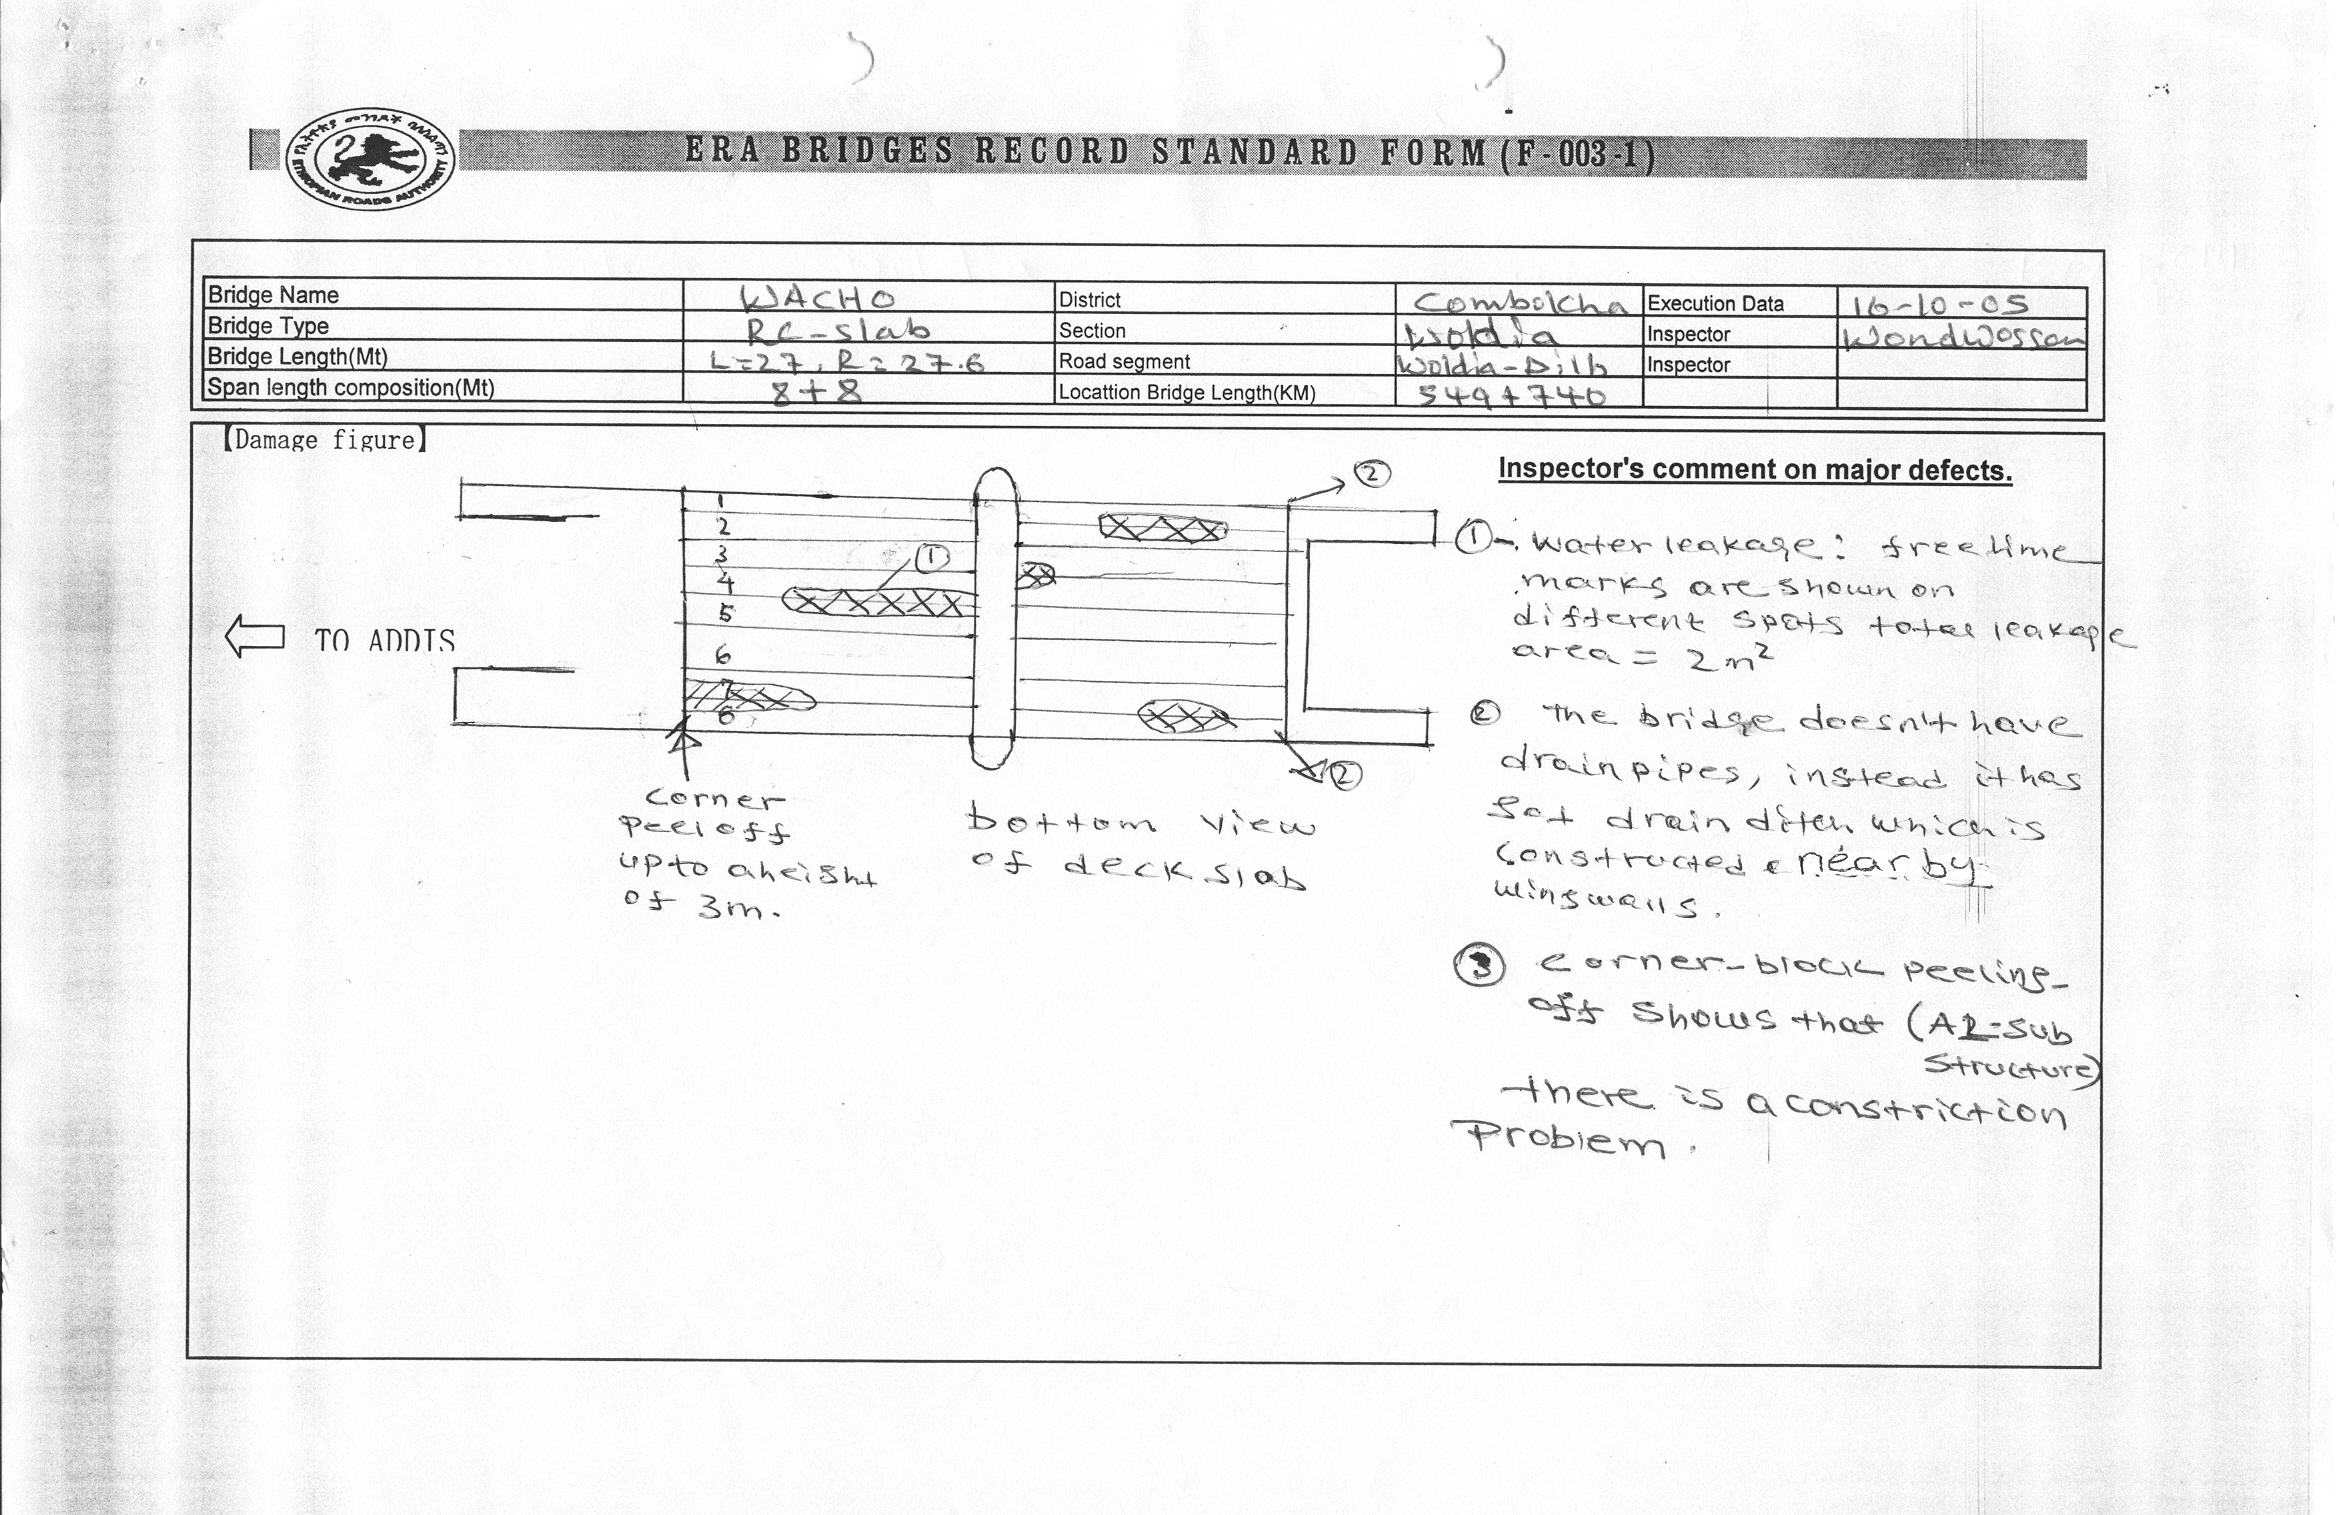 ETHIOPIAN ROADS AUTHORITY
ERA BRIDGES RECORD STANDARD FORM (F-003-1)
Bridge Name WACHO District Combolcha Execution Data 16-10-05
Bridge Type RC-slab Section Woldia Inspector Wondwossen
Bridge Length(Mt) L=27, R=27.6 Road segment Woldia-Dilb Inspector
Span length composition(Mt) 8+8 Locattion Bridge Length(KM) 549+740
【Damage figure】
Inspector's comment on major defects.
②
1
2
3
4
5
6
7
8
①
TO ADDIS
②
corner
peel off
up to a height
of 3m.
bottom view
of deck slab
①-. Water leakage: free lime
marks are shown on
different spots total leakage
area = 2m²
② The bridge doesn't have
drain pipes, instead it has
drain ditch which is
constructed near by
wingwalls.
③ corner-block peeling-
off shows that (A1-sub
structure)
there is a constriction
Problem.